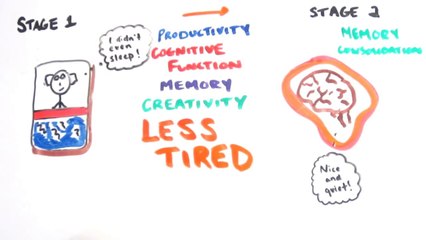 STAGE 1
I didn't
even
sleep!
PRODUCTIVITY
COGNITIVE
FUNCTION
MEMORY
CREATIVITY
LESS
TIRED
STAGE 2
MEMORY
CONSOLIDATION
Nice
and
quiet!